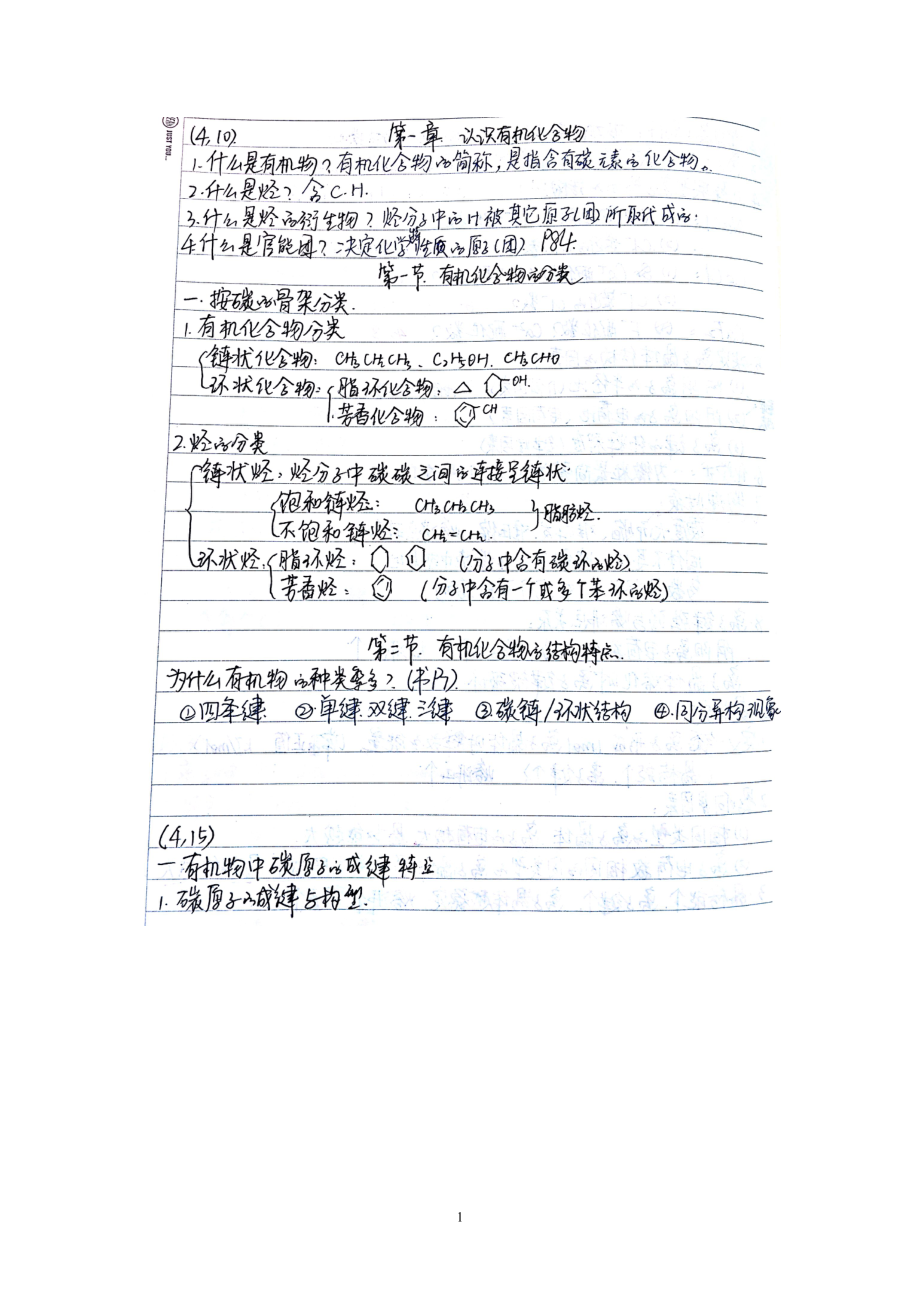 JUST YOU...
(4,10) 第一章 认识有机化合物
1.什么是有机物?有机化合物的简称,是指含有碳元素的化合物。
2.什么是烃?含C.H.
3.什么是烃的衍生物?烃分子中的H被其它原子(团)所取代成的.
4.什么是官能团?决定化学特性质的原子(团) P84.
第一节.有机化合物的分类
一.按碳的骨架分类.
1.有机化合物分类
链状化合物: CH3CH2CH3、C2H5OH、CH3CHO
环状化合物: 脂环化合物: OH.
芳香化合物: CH
2.烃的分类
链状烃:烃分子中碳碳之间的连接呈链状.
饱和链烃: CH3CH2CH3
脂肪烃.
不饱和链烃: CH2=CH2
环状烃. 脂环烃: (分子中含有碳环的烃)
芳香烃: (分子中含有一个或多个苯环的烃)
第二节.有机化合物的结构特点.
为什么有机物的种类繁多?(书P7)
①四条键 ②单键.双键.三键 ③碳链/环状结构 ④.同分异构现象
(4,15)
一.有机物中碳原子的成键特点
1.碳原子的成键与构型.
1